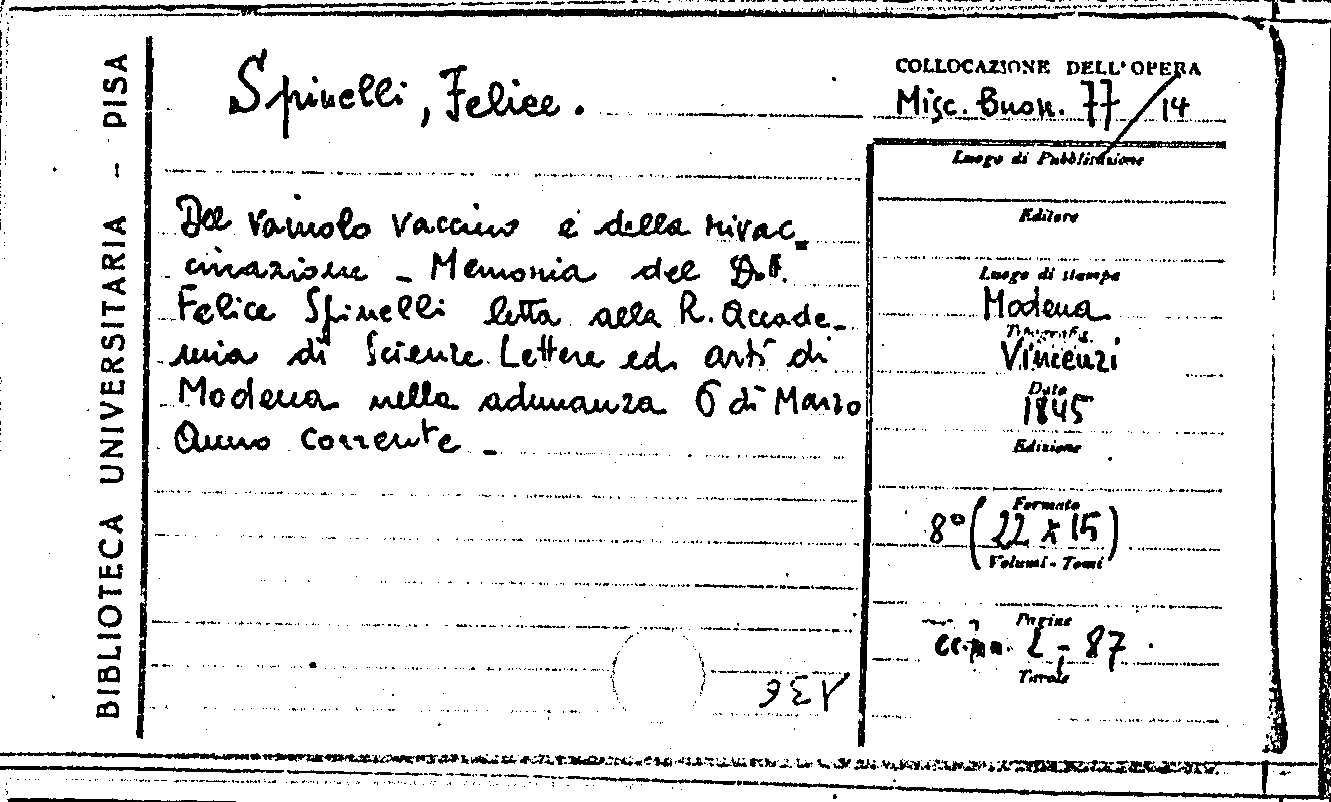 BIBLIOTECA UNIVERSITARIA - PISA
Spinelli, Felice.
Del vaiuolo vaccino e della rivac=
cinazione - Memoria del D.r
Felice Spinelli letta alla R. Accade-
mia di Scienze Lettere ed arti di
Modena nella adunanza 6 di Marzo
Anno corrente -
COLLOCAZIONE DELL'OPERA
Misc. Buon. 77/14
Luogo di Pubblicazione
Editore
Luogo di stampa
Modena
Tipografia
Vincenzi
Data
1845
Edizione
Formato
8° (22 x 15)
Volumi - Tomi
Pagine
cc.nn. 2, 87
Tavole